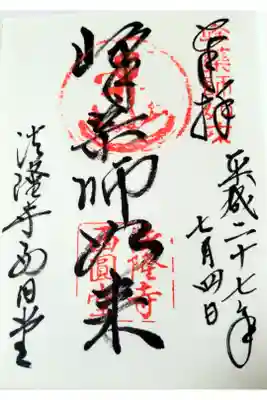 奉拝
平成二十七年
七月四日
峰薬師如来
法隆寺
西圓堂
法隆寺西円堂